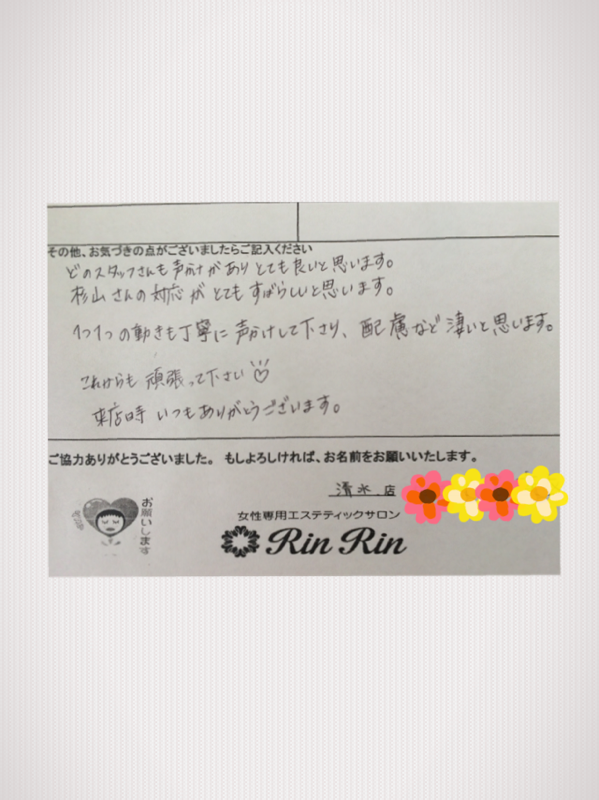 その他、お気づきの点がございましたらご記入ください
どのスタッフさんも声かけがありとても良いと思います。
杉山さんの対応がとてもすばらしいと思います。
1つ1つの動きも丁寧に声かけして下さり、配慮など凄いと思います。
これからも頑張って下さい
来店時いつもありがとうございます。
ご協力ありがとうございました。もしよろしければ、お名前をお願いいたします。
清水店
お願いします
女性専用エステティックサロン
Rin Rin